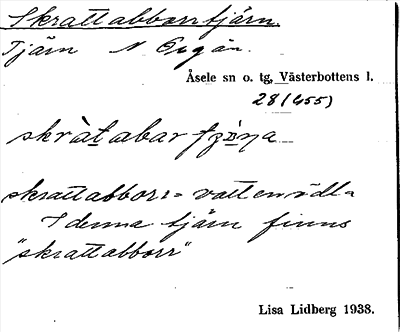 Skrattabborrtjärn.
Tjärn N Örgån.
Åsele sn o. tg, Västerbottens l.
28(455)
skràtabar
skrattabborr = vattenödla
I denna tjärn finns
"skrattabborr"
Lisa Lidberg 1938.